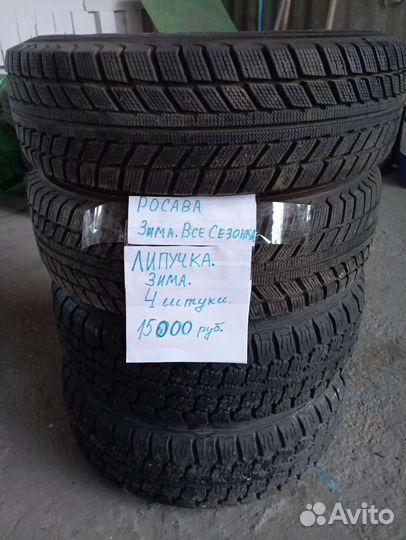 РОСАВА
Зима. Все Сезонка
ЛИПУЧКА.
Зима.
4 штуки.
15000 руб.
Avito